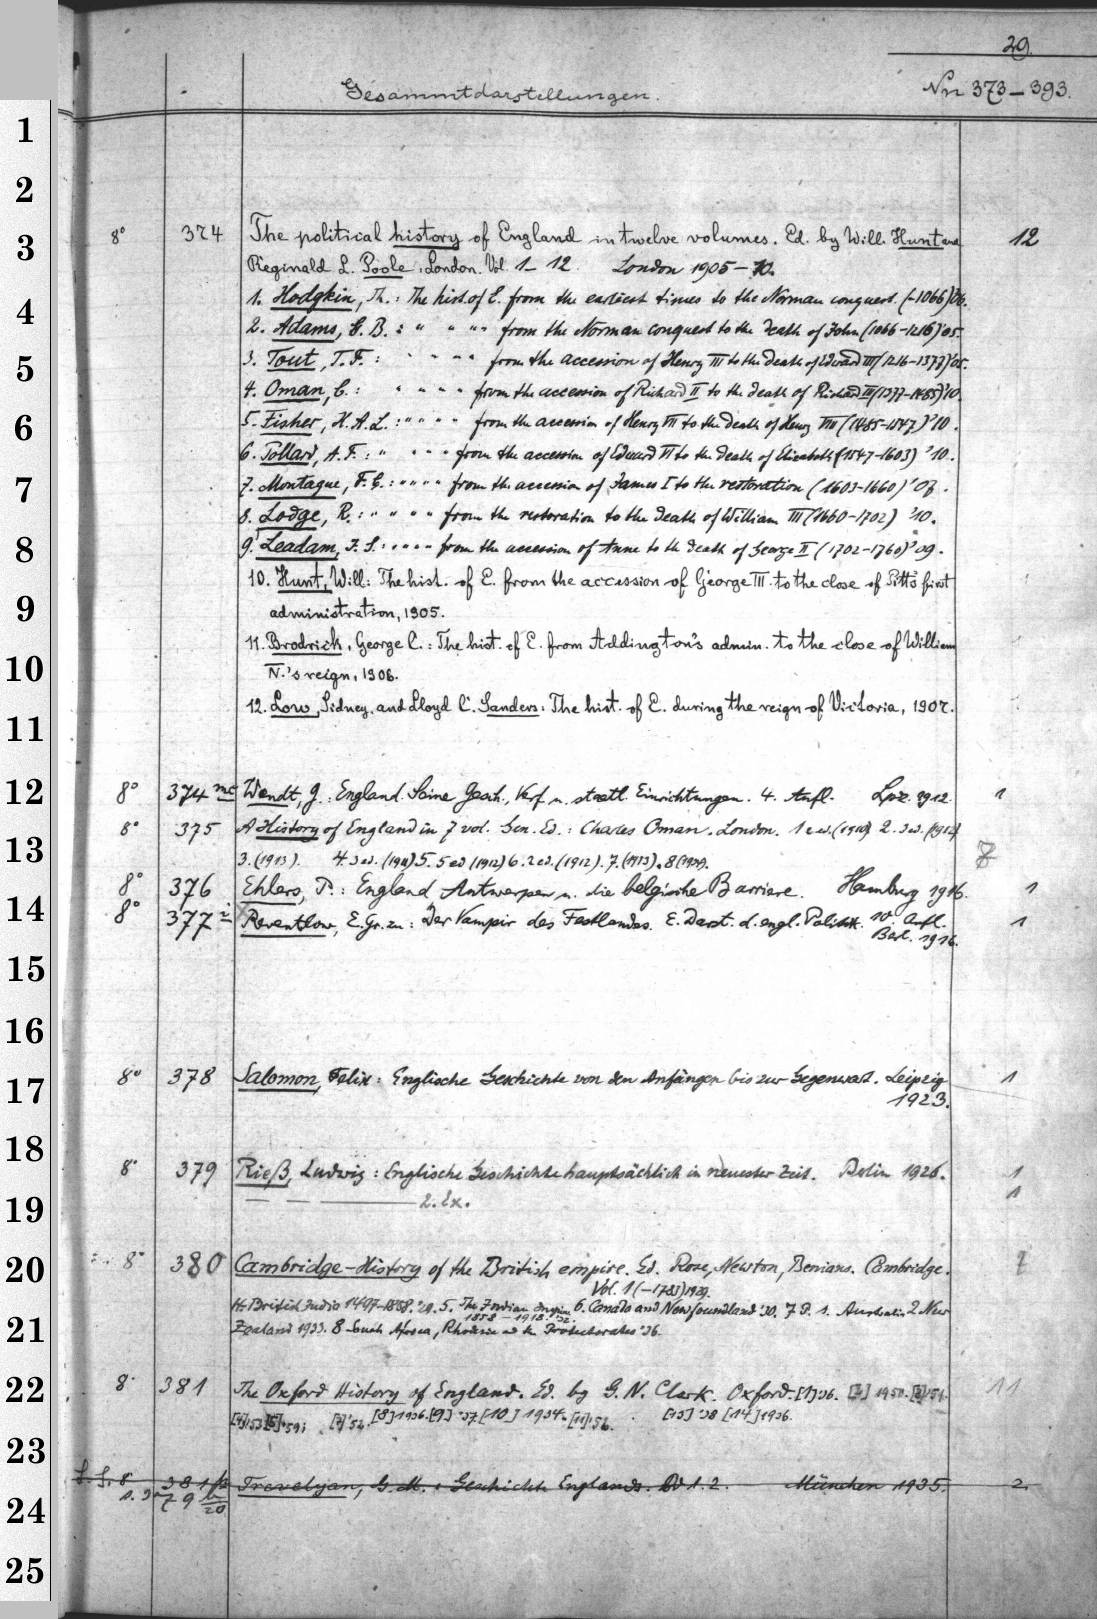 29.
Gesammtdarstellungen.
Nn 373–393.
1
2
3
8° 374 The political history of England in twelve volumes. Ed. by Will. Hunt and 12
Reginald L. Poole. London. Vol 1–12. London 1905–10.
4
1. Hodgkin, Th.: The hist. of E. from the earliest times to the Norman conquest. (–1066) '06.
2. Adams, G. B.: " " " " from the Norman conquest to the death of John (1066–1216) '05.
5
3. Tout, T. F.: " " " " from the accession of Henry III to the death of Edward III (1216–1377) '05.
4. Oman, C.: " " " " from the accession of Richard II to the death of Richard III (1377–1485) '10.
6
5. Fisher, H. A. L.: " " " " from the accession of Henry VII to the death of Henry VIII (1485–1547) '10.
6. Pollard, A. F.: " " " " from the accession of Edward VI to the death of Elizabeth (1547–1603) '10.
7
7. Montague, F. C.: " " " " from the accession of James I to the restoration (1603–1660) '07.
8. Lodge, R.: " " " " from the restoration to the death of William III (1660–1702) '10.
8
9. Leadam, I. S.: " " " " from the accession of Anne to the death of George II (1702–1760) '09.
10. Hunt, Will: The hist. of E. from the accession of George III. to the close of Pitt's first
9
administration, 1905.
11. Brodrick, George C.: The hist. of E. from Addington's admin. to the close of William
10
IV.'s reign, 1906.
12. Low, Sidney, and Lloyd C. Sanders: The hist. of E. during the reign of Victoria, 1907.
11
12
8° 374 Wendt, G.: England. Seine Gesch., Verf. u. staatl. Einrichtungen. 4. Aufl. Lpz. 1912. 1
8° 375 A History of England in 7 vol. Gen. Ed.: Charles Oman. London. 1 ed. (1910) 2. 3 ed. (1912)
13
3. (1913). 4. 3 ed. (1911) 5. 5 ed (1912) 6. 2 ed. (1912). 7. (1913). 8 8
8° 376 Ehlers, P.: England Antwerpen u. die belgische Barriere. Hamburg 1916. 1
14
8° 377 Reventlow, E. Gr. zu: Der Vampir des Festlandes. E. Darst. d. engl. Politik. 10. Aufl. 1
Berl. 1916.
15
16
17
8° 378 Salomon, Felix: Englische Geschichte von den Anfängen bis zur Gegenwart. Leipzig 1
1923.
18
8° 379 Rieß, Ludwig: Englische Geschichte hauptsächlich in neuester Zeit. Berlin 1926. 1
19
2. Ex. 1
20
8° 380 Cambridge–History of the British empire. Ed. Rose, Newton, Benians. Cambridge.
Vol. 1 (–1783) 1929.
4. British India 1497–1858. '29. 5. The Indian Empire 1858–1918. '32. 6. Canada and Newfoundland '30. 7 P. 1. Australia 2 New
21
Zealand 1933. 8 South Africa, Rhodesia and the Protectorates '36.
22
8° 381 The Oxford History of England. Ed. by G. N. Clark. Oxford. [1] '36. [2] 1950. [3] '51. 11
[8] 1936. [9] '37 [10] 1934. [11] '56. [13] '38 [14] 1936.
23
381 Trevelyan, G. M.: Geschichte Englands. Bd 1. 2. München 1935. 2
24
79
25